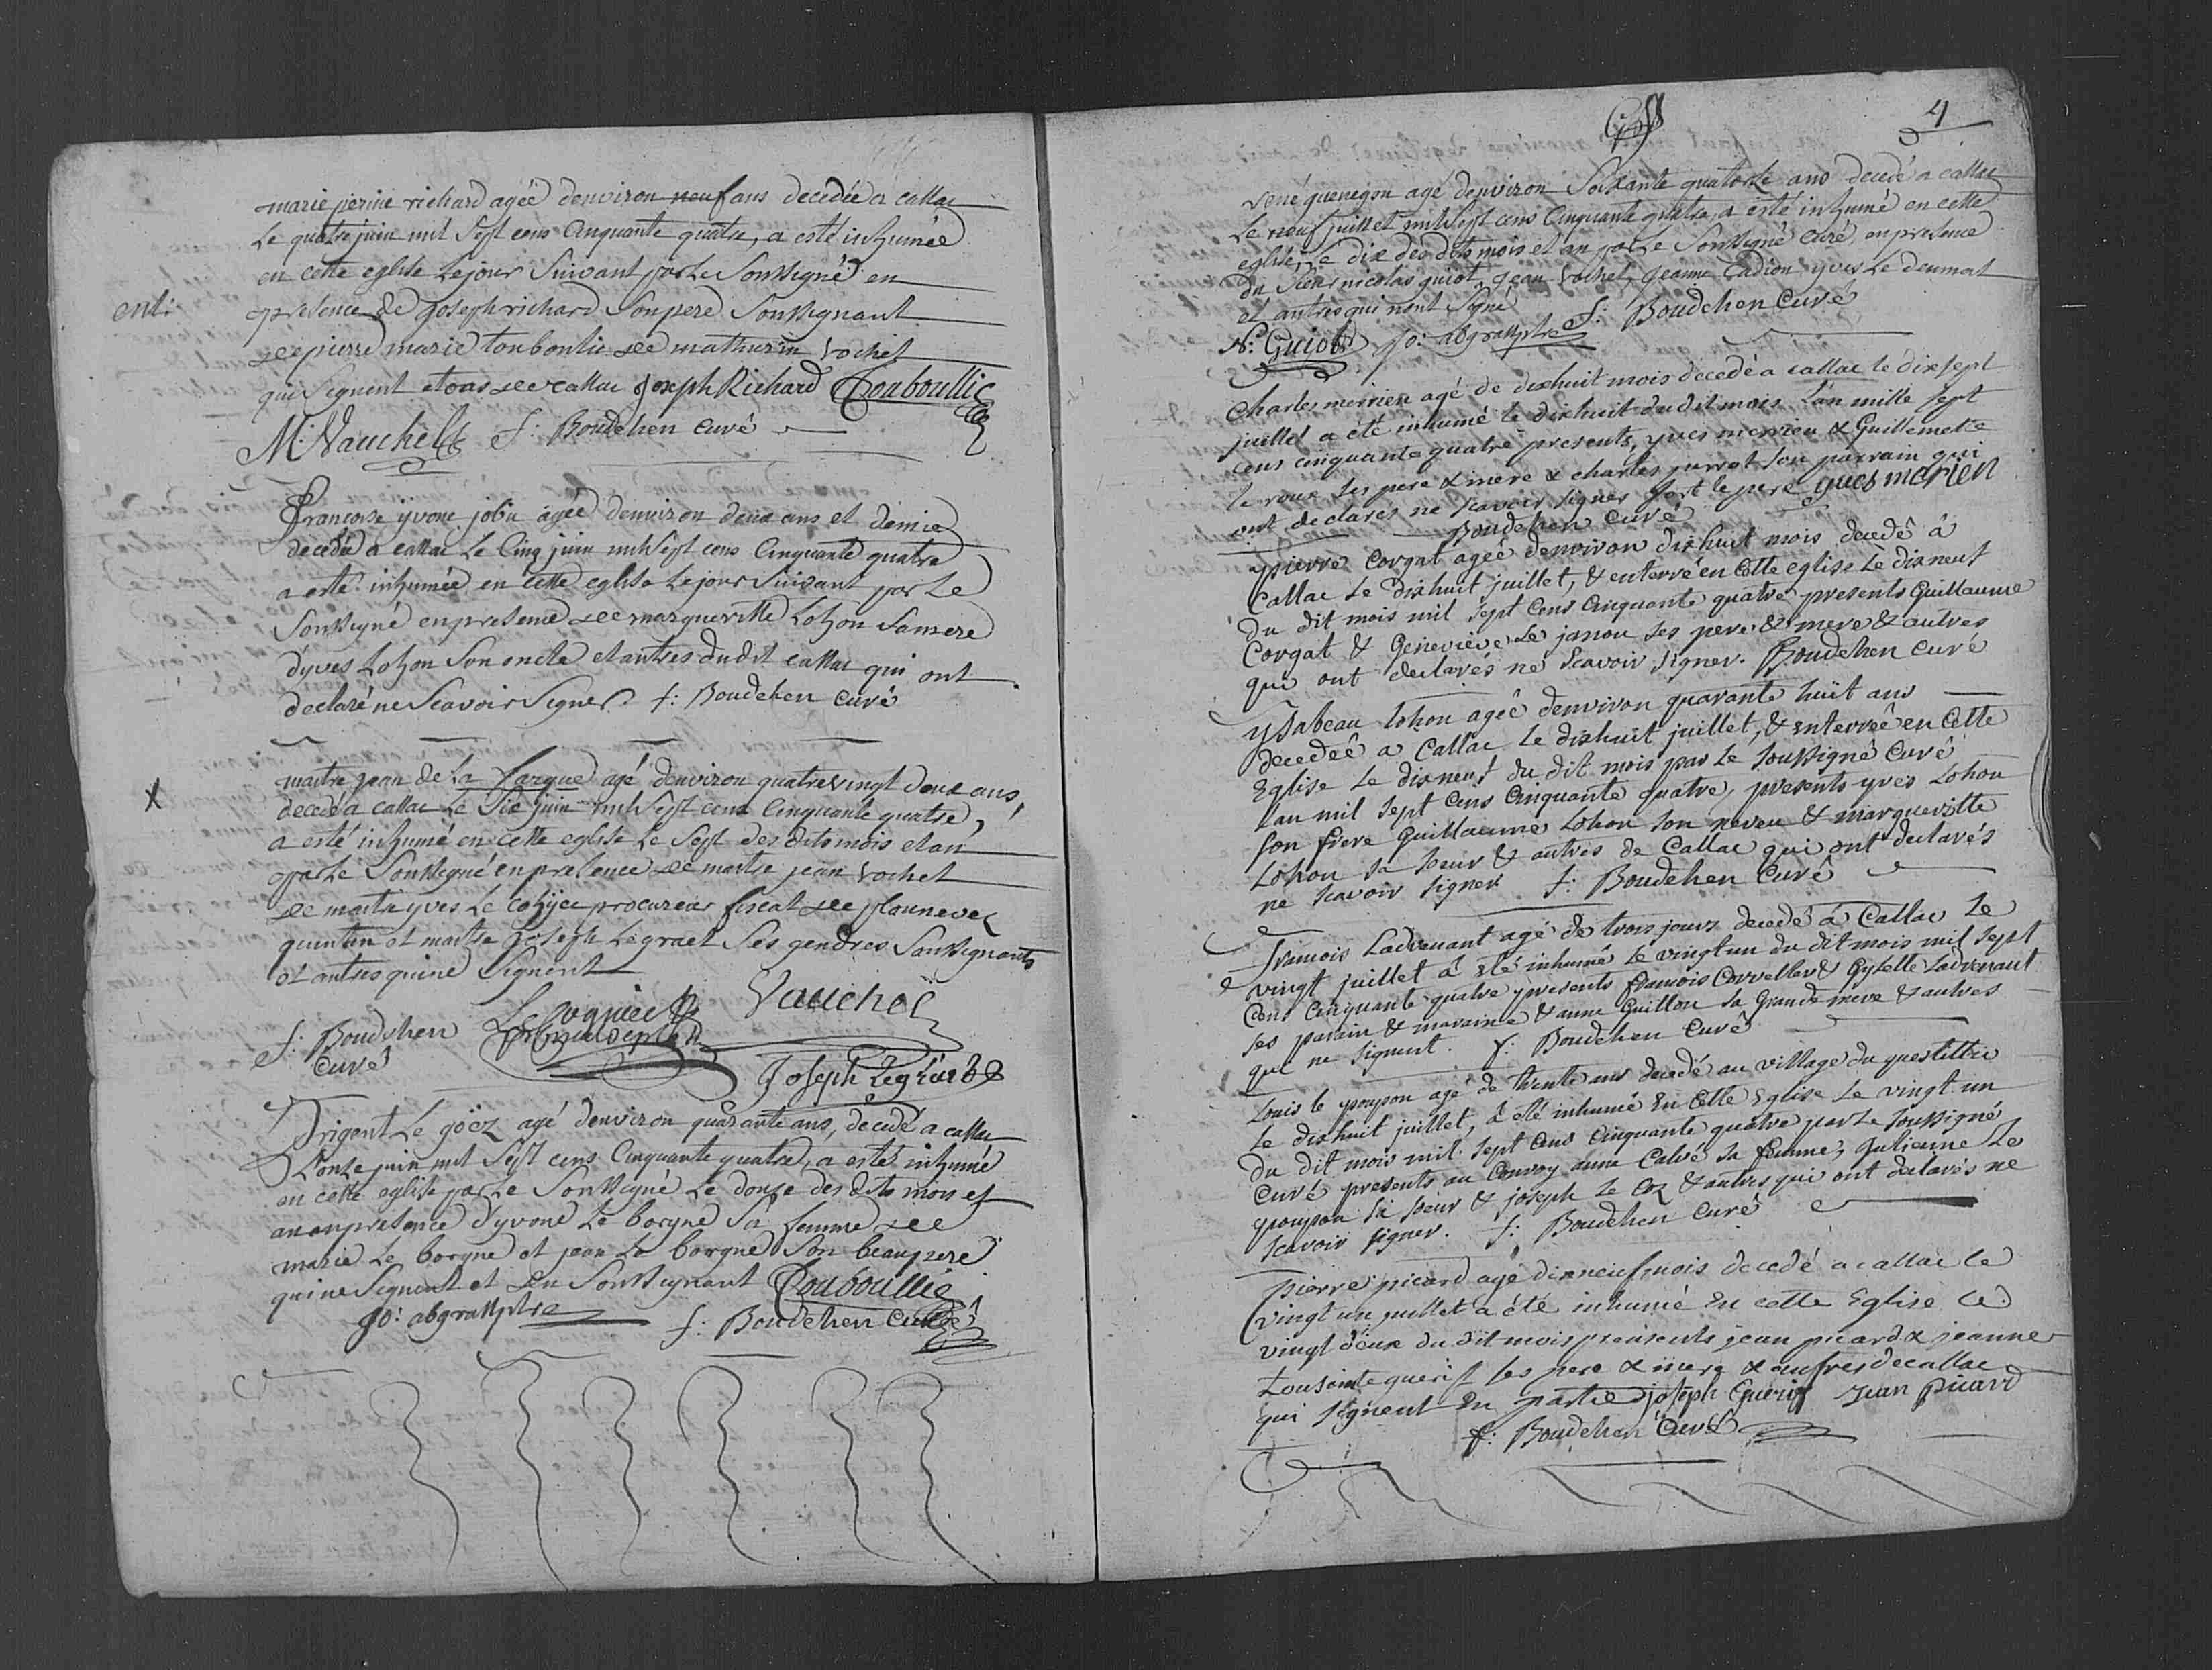 marie perine richard agée denviron neuf ans decedée a callac
Le quatre juin mil Sept cens Cinquante quatre, a esté inhumée
en cette eglise Le jour Suivant par Le Soussigné en
ent:
presence de joseph richard Son pere Soussignant
de pierre marie touboulic de mathurin vochel
qui Signent et ous de callac Joseph Richard Touboullic
M: Vauchelet f: Boudehen curé
Francoise yvone jobin agée denviron deux ans et demie
decedée a callac Le Cinq juin mil Sept cens Cinquante quatre
a esté inhumée en cette eglise Le jour Suivant par Le
Soussigné en presence de margueritte Lohon Sa mere
d'yves Lohon Son oncle et autres dudit callac qui ont
declaré ne Scavoir Signer f: Boudehen curé
X
maitre jean de La fargue agé denviron quatrevingt deux ans,
decedé a callac Le Six juin mil Sept cens Cinquante quatre,
a esté inhumé en cette eglise Le Sept des dits mois et an
par Le Soussigné en presence de maitre jean vochel
de maitre yves Le procureur fiscal de plounevez
quintin et maitre joseph Legraet Ses gendres Soussignants
et autres qui ne Signent
Vauchel
f: Boudehen
curé
Joseph
Trigent Le göez agé denviron quarante ans, decedé a callac
L'onze juin mil Sept cens Cinquante quatre, a esté inhumé
en cette eglise par Le Soussigné Le douze des dits mois et
an en presence d'yvone Le borgne Sa femme de
marie Le borgne et jean Le borgne Son beaupere
qui ne Signent et du Soussignant Touboullic
jo: abgrall ptre f: Boudehen curé
4
rené guenegon agé denviron Soixante quatorze ans decedé a callac
Le neuf juillet mil Sept cens Cinquante quatre, a esté inhumé en cette
eglise, Le dix des dits mois et an par Le Soussigné curé, en presence
du Sieur nicolas guiot, jean vochel, jeanne Cadiou yves Le deumat
et autres qui n'ont Signé
N: Guiot jo: abgrall ptre f: Boudehen Curé
Charles merrien agé de dixhuit mois decedé a callac le dix sept
juillet a eté inhumé le dixhuit du dit mois L'an mille sept
cens cinquante quatre presents, yves merrien & Guillemette
le roux ses pere & mere & charles perrot son parrain qui
ont declarés ne scavoir signer fors le pere yues merien
Boudehen curé
pierre Corgat ageé denviron dixhuit mois decedé à
Callac Le dixhuit juillet, & enterré en Cette eglise Le dixneuf
du dit mois mil sept Cens Cinquante quatre presents Guillaume
Corgat & Genevieve Le janou ses pere & mere & autres
qui ont declarés ne Scavoir signer. Boudehen curé
ysabeau Lohon agée denviron quarante huit ans
decedeé a Callac Le dixhuit juillet, & enterreé en Cette
Eglise Le dixneuf du dit mois par Le soussigné Curé
Lan mil sept Cens Cinquante quatre, presents yves Lohon
son frere Guillaume Lohon son neveu & margueritte
Lohon sa soeur & autres de Callac qui ont declarés
ne scavoir signer f: Boudehen Curé
francois Ladvenant agé de trois jours decedé à Callac Le
vingt juillet a eté inhumé Le vingt un du dit mois mil sept
Cens Cinquante quatre presents francois & Gylette Ladvenant
ses parain & maraine & anne Guillou sa Grande mere & autres
qui ne signent. f: Boudehen Curé
Louis le poupon agé de trente ans decedé au village du
Le dixhuit juillet, a eté inhumé En Cette Eglise Le vingt un
du dit mois mil sept Cens Cinquante quatre par Le soussigné
Curé presents au Convoy anne Calvé sa femme, Julienne Le
poupon sa soeur & joseph Le & autres qui ont declarés ne
scavoir signer. f: Boudehen Curé
pierre picard agé dixneuf mois decedé a callac le
vingt un juillet a été inhumé En cette Eglise le
vingt deux du dit mois presents jean picard & jeanne
tousainte guerif ses pere & mere & autres de callac
qui signent En partie joseph Guerif Jean picard
f: Boudehen Curé